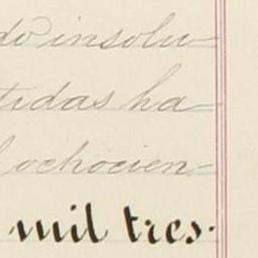 do insolu
tidas ha
ochocien-
mil tres.